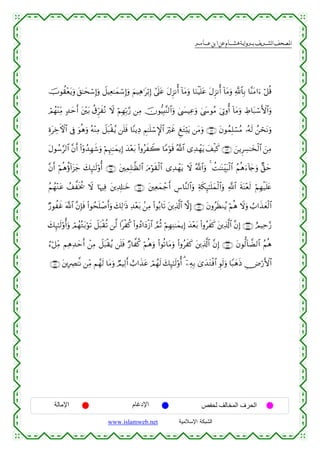 المصحف الشريف برواية هشام عن ابن عامر
قُلْ ءَامَنَّا بِٱللَّهِ وَمَآ أُنزِلَ عَلَيْنَا وَمَآ أُنزِلَ عَلَىٰٓ إِبْرَٰهِيمَ وَإِسْمَٰعِيلَ وَإِسْحَٰقَ وَيَعْقُوبَ
وَٱلْأَسْبَاطِ وَمَآ أُوتِىَ مُوسَىٰ وَعِيسَىٰ وَٱلنَّبِيُّونَ مِن رَّبِّهِمْ لَا نُفَرِّقُ بَيْنَ أَحَدٍ مِّنْهُمْ
وَنَحْنُ لَهُۥ مُسْلِمُونَ وَمَن يَبْتَغِ غَيْرَ ٱلْإِسْلَٰمِ دِينًا فَلَن يُقْبَلَ مِنْهُ وَهُوَ فِى ٱلْأَخِرَةِ
مِنَ ٱلْخَٰسِرِينَ كَيْفَ يَهْدِى ٱللَّهُ قَوْمًا كَفَرُوا۟ بَعْدَ إِيمَٰنِهِمْ وَشَهِدُوٓا۟ أَنَّ ٱلرَّسُولَ
حَقٌّ وَجَآءَهُمُ ٱلْبَيِّنَٰتُ وَٱللَّهُ لَا يَهْدِى ٱلْقَوْمَ ٱلظَّٰلِمِينَ أُو۟لَٰٓئِكَ جَزَآؤُهُمْ أَنَّ
عَلَيْهِمْ لَعْنَةَ ٱللَّهِ وَٱلْمَلَٰٓئِكَةِ وَٱلنَّاسِ أَجْمَعِينَ خَٰلِدِينَ فِيهَا لَا يُخَفَّفُ عَنْهُمُ
ٱلْعَذَابُ وَلَا هُمْ يُنظَرُونَ إِلَّا ٱلَّذِينَ تَابُوا۟ مِنۢ بَعْدِ ذَٰلِكَ وَأَصْلَحُوا۟ فَإِنَّ ٱللَّهَ غَفُورٌ
رَّحِيمٌ إِنَّ ٱلَّذِينَ كَفَرُوا۟ بَعْدَ إِيمَٰنِهِمْ ثُمَّ ٱزْدَادُوا۟ كُفْرًا لَّن تُقْبَلَ تَوْبَتُهُمْ وَأُو۟لَٰٓئِكَ
هُمُ ٱلضَّآلُّونَ إِنَّ ٱلَّذِينَ كَفَرُوا۟ وَمَاتُوا۟ وَهُمْ كُفَّارٌ فَلَن يُقْبَلَ مِنْ أَحَدِهِم مِّلْءُ
ٱلْأَرْضِ ذَهَبًا وَلَوِ ٱفْتَدَىٰ بِهِۦٓ أُو۟لَٰٓئِكَ لَهُمْ عَذَابٌ أَلِيمٌ وَمَا لَهُم مِّن نَّٰصِرِينَ
الحرف المخالف لحفص الإدغام الإمالة
الشبكة الإسلامية www.islamweb.net